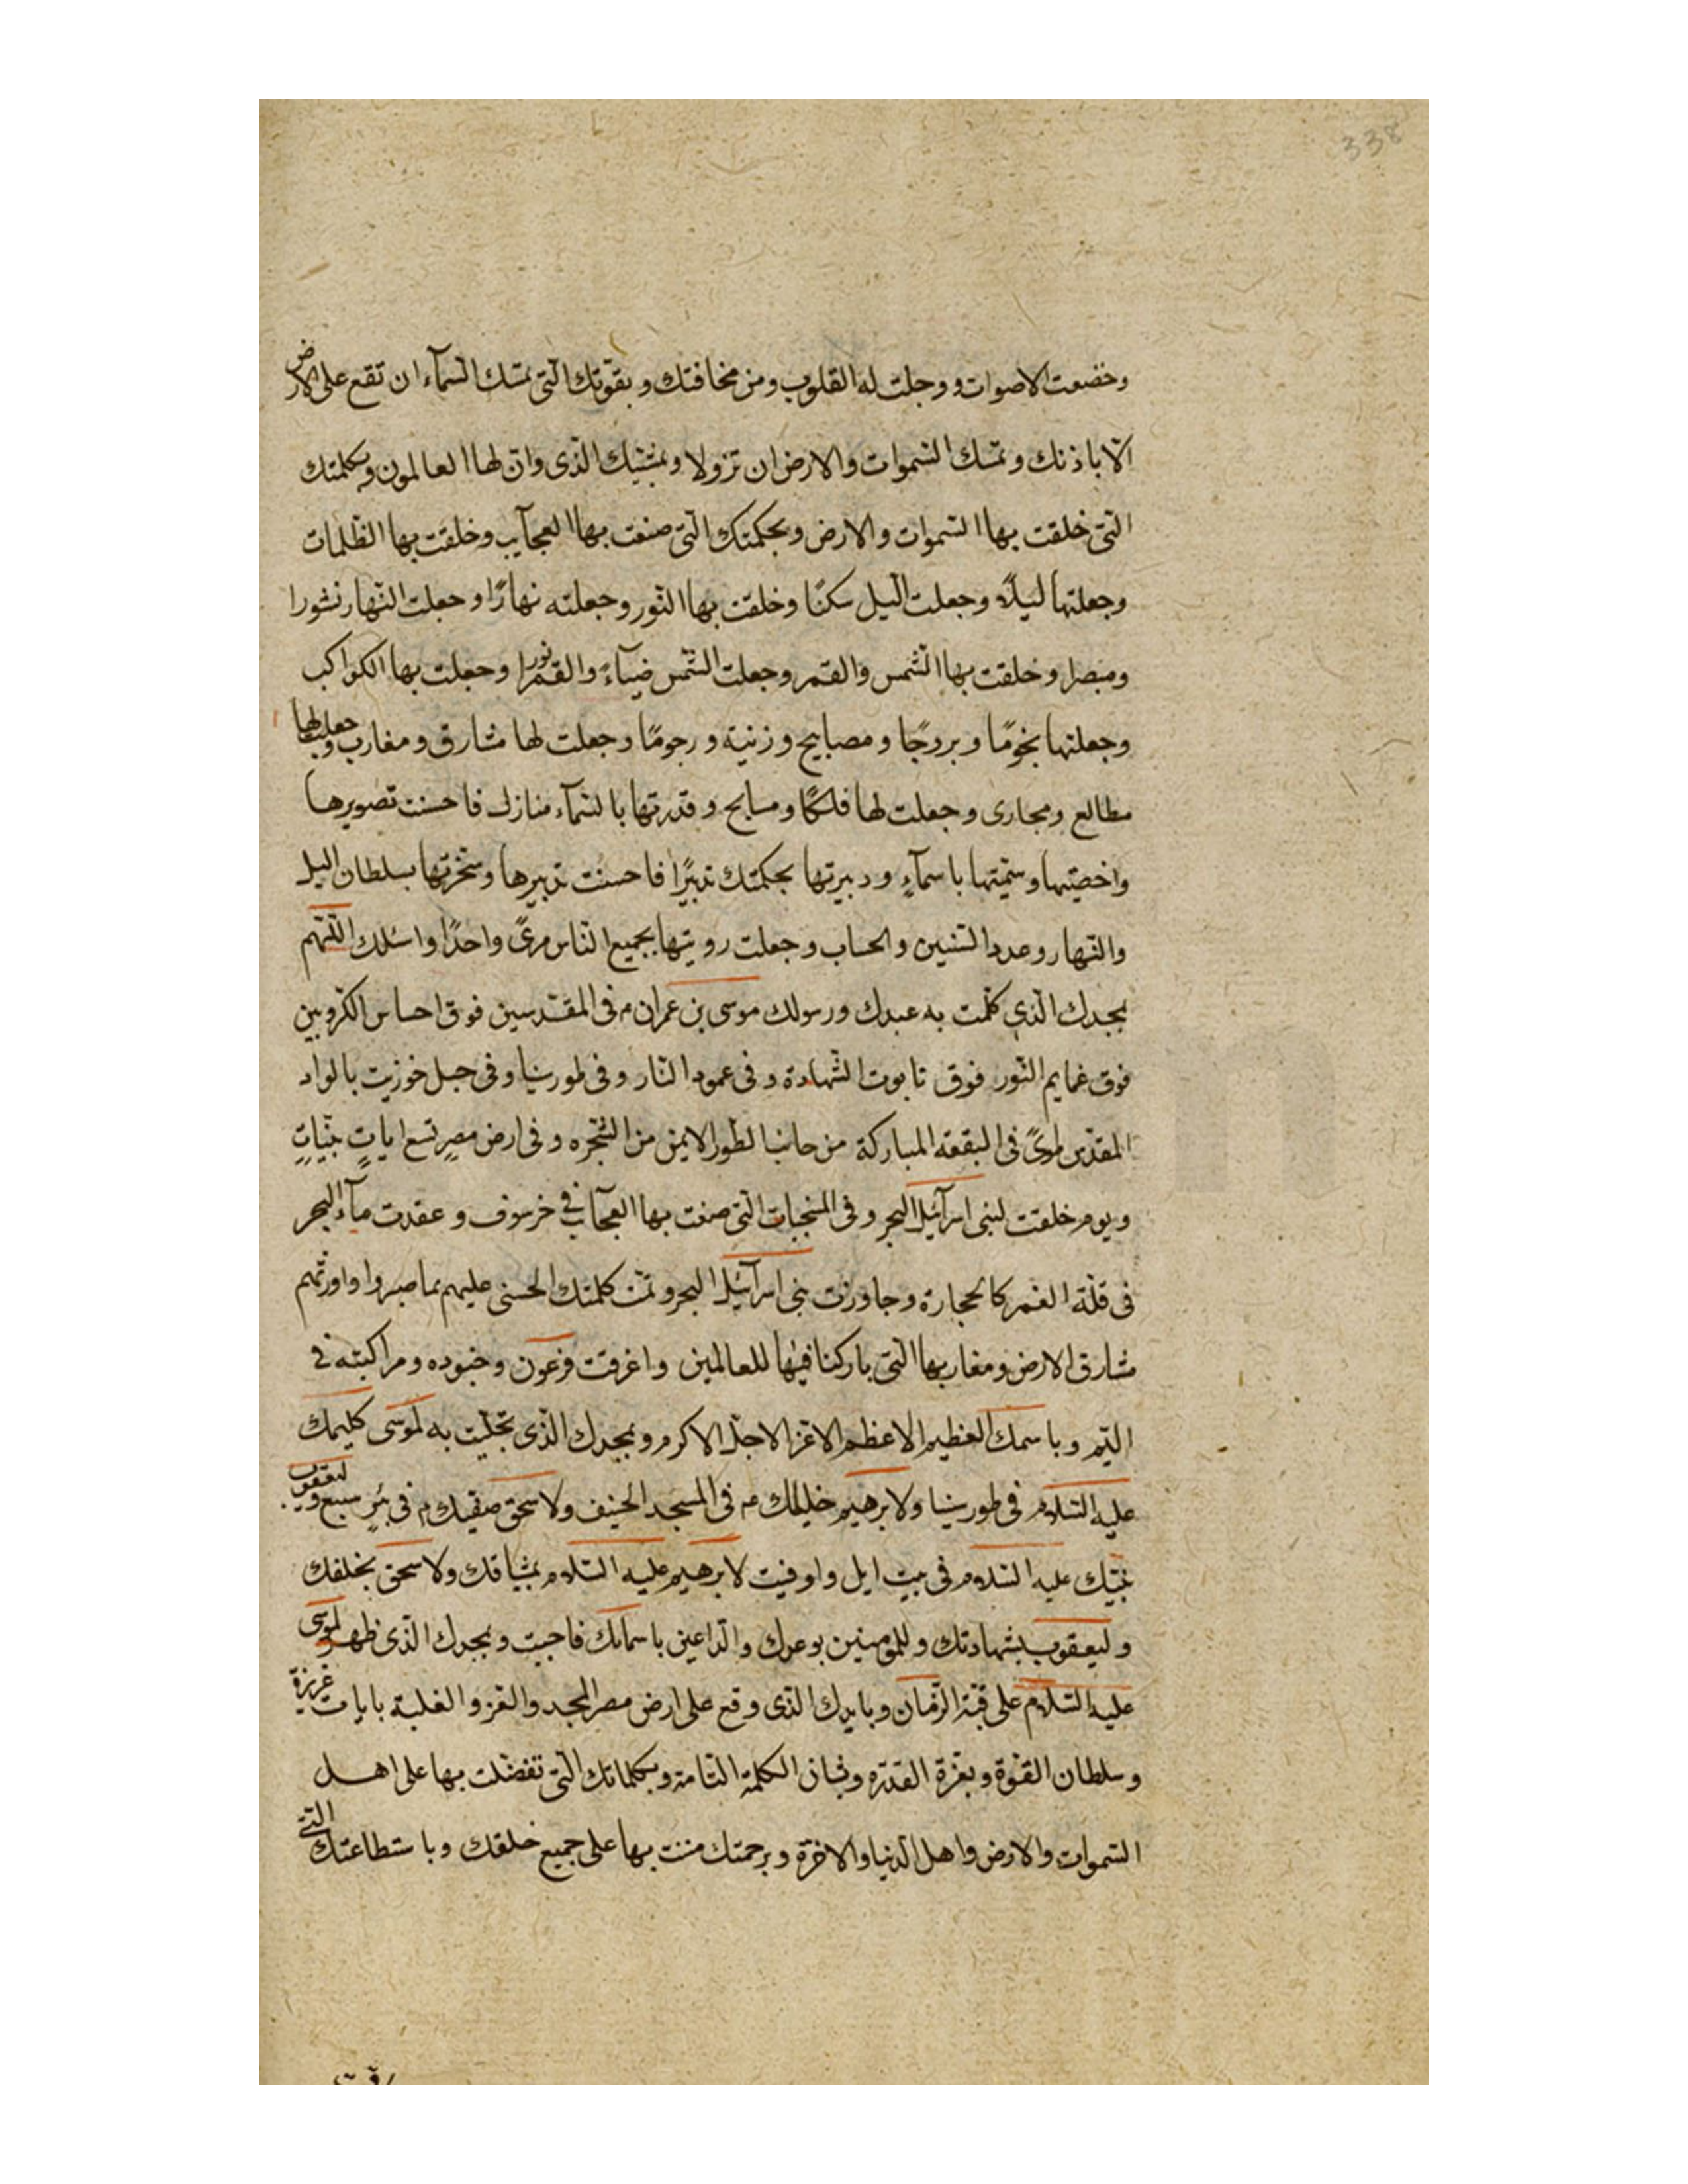 338
وخضعت الاصوات ووجلت له القلوب ومن مخافتك و بقوّتك الّتى تمسك السّمآء ان تقع على الارض
الّا باذنك و تمسك السّموات والارض ان تزولا وبمشيّتك الّذى دان لها العالمون وبكلمتك
الّتى خلقت بها السّموات والارض وبحكمتك الّتى صنعت بها العجآيب وخلقت بها الظّلمات
وجعلتها ليلاً وجعلت اللّيل سكنًا وخلقت بها النّور وجعلته نهارًا وجعلت النّهار نشورا
ومبصرا وخلقت بها الشّمس والقمر وجعلت الشّمس ضيآءً والقمر نورا وجعلت بها الكواكب
وجعلتها نجومًا وبروجًا ومصابيح وزنية ورجومًا وجعلت لها مشارق ومغارب وجعلت لها
مطالع ومجارى وجعلت لها فلكًا ومسابح وقدرتها بالسّمآء منازل فاحسنت تصويرها
واحصيتها وسمّيتها باسمآءٍ ودبرتها بحكمتك تدبيرًا فاحسنت تدبيرها وسخّرتها بسلطان اليل
والنّهار وعدد السّنين والحساب وجعلت رويتها بجميع النّاس مرىً واحدًا واسئلك اللّهم
بمجدك الّذى كلّمت به عبدك ورسولك موسى بن عمران م فى المقدّسين فوق احساس الكرّوبين
فوق غمايم النّور فوق تابوت الشّهادة وفى عمود النّار وفى طور سينا وفى جبل حوزيت بالواد
المقدّس طوىً فى البقعة المباركة من جانب الطّور الايمن من الشّجره وفى ارض مصر بتسع اياتٍ بيّناتٍ
ويوم خلقت لبنى اسرآئيل البحر وفى المنبجسات الّتى صنعت بها العجآئب فى خرسوف وعقدت مآء البحر
فى قلّة الغمر كالحجارة وجاوزت بنى اسرآئيل البحر وتمّت كلمتك الحسنى عليهم بما صبروا واورثتهم
مشارق الارض ومغاربها الّتى باركنا فيها للعالمين واغرقت فرعون وجنوده ومراكبته فى
اليّم وباسمك العظيم الاعظم الاعز الاجلّ الاكرم وبمجدك الّذى تجلّيت به لموسى كليمك
عليه السّلام فى طور سينا ولابرهيم خليلك م فى المسجد الحنيف ولاسحق صفيك م فى بئرٍ سبع وليعقوب
نبيّك عليه السّلام فى بيت ايل واوفيت لابرهيم عليه السّلام بميثاقك ولاسحق بخلفك
وليعقوب بشهادتك وللمومنين بوعدك والدّاعين باسمآئك فاجبت وبمجدك الّذى ظهر لموسى
عليه السّلام على قبّة الزّمان وبايدك الّذى وقع على ارض مصر المجد والعز والغلبة بايات عزيزة
وسلطان القوّة وبعزّة القدره وبشان الكلمة التّامة وبكلماتك الّتى تفضّلت بها على اهل
السّموات والارض واهل الدّنيا والاخرة وبرحمتك مننت بها على جميع خلقك وباستطاعتك الّتى